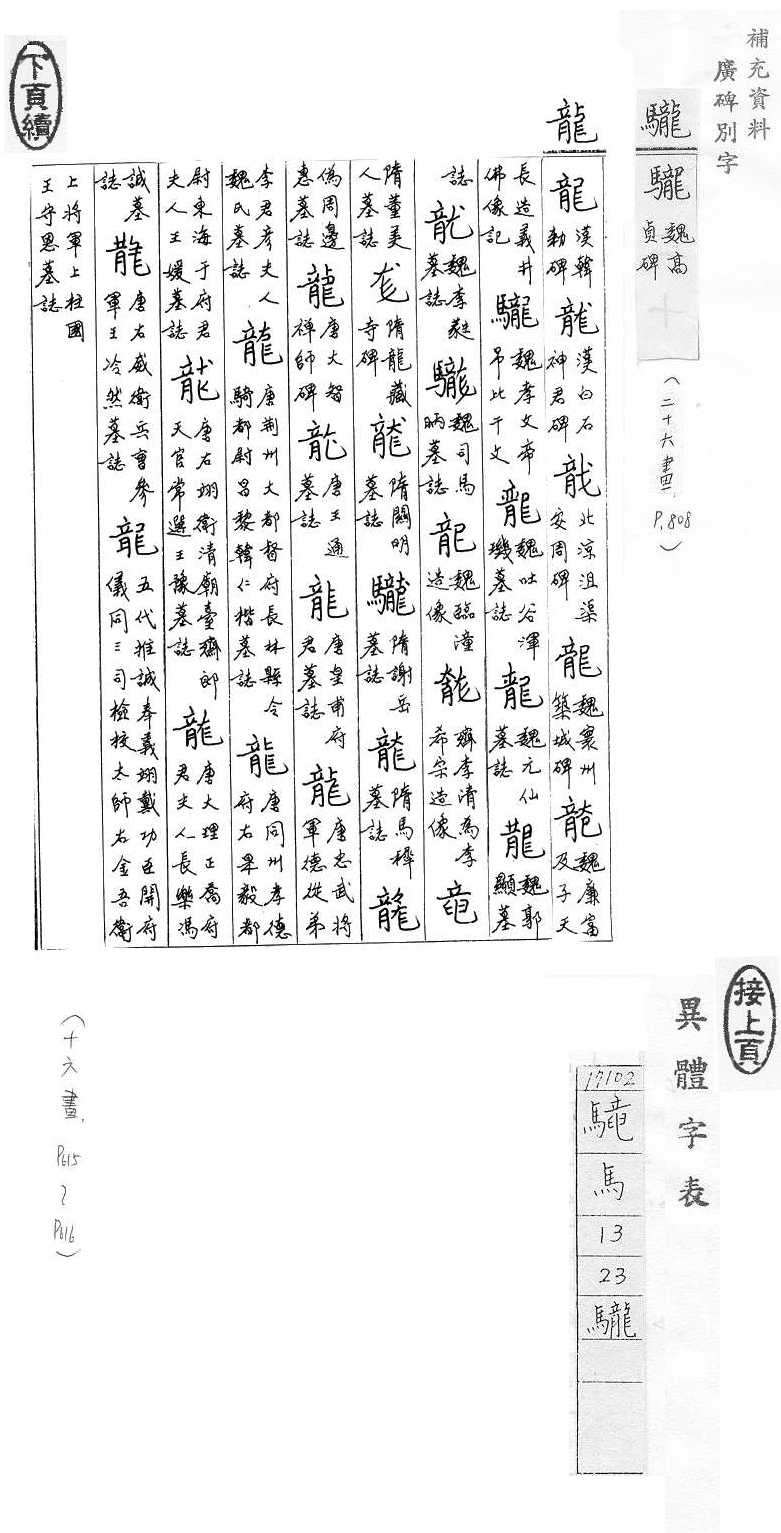 補充資料
廣碑別字
驪
驪 魏高貞碑
（二十六畫．P.808）
龍
龍 漢韓勑碑 龍 漢白石神君碑 龍 北涼沮渠安周碑 龍 魏襄州築城碑 龍 魏廉富及子天
長造義井佛像記 驪 魏孝文帝弔比干文 龍 魏吐谷渾璣墓誌 龍 魏元仙墓誌 龍 魏郭顯墓
誌 龍 魏李蕤墓誌 驪 魏司馬昞墓誌 龍 魏臨潼造像 龍 齊李清為李希宗造像 竜
隋董美人墓誌 龍 隋龍藏寺碑 龍 隋關明墓誌 驪 隋謝岳墓誌 龍 隋馬穉墓誌 龍
偽周邊惠墓誌 龍 唐大智禪師碑 龍 唐王通墓誌 龍 唐皇甫府君墓誌 龍 唐忠武將軍德從弟
李君彥夫人魏氏墓誌 龍 唐荊州大都督府長林縣令騎都尉昌黎韓仁楷墓誌 龍 唐同州孝德府右果毅都
尉東海于府君夫人王媛墓誌 龍 唐右翊衛清廟臺齋郎天官常選王豫墓誌 龍 唐大理正喬府君夫人長樂馮
誠墓誌 龍 唐右威衛兵曹參軍王冷然墓誌 龍 五代推誠奉義翊戴功臣開府儀同三司檢校太師右金吾衛
上將軍上柱國王守恩墓誌
下頁續
（十六畫．P615～P616）
接上頁
異體字表
17102
馬
13
23